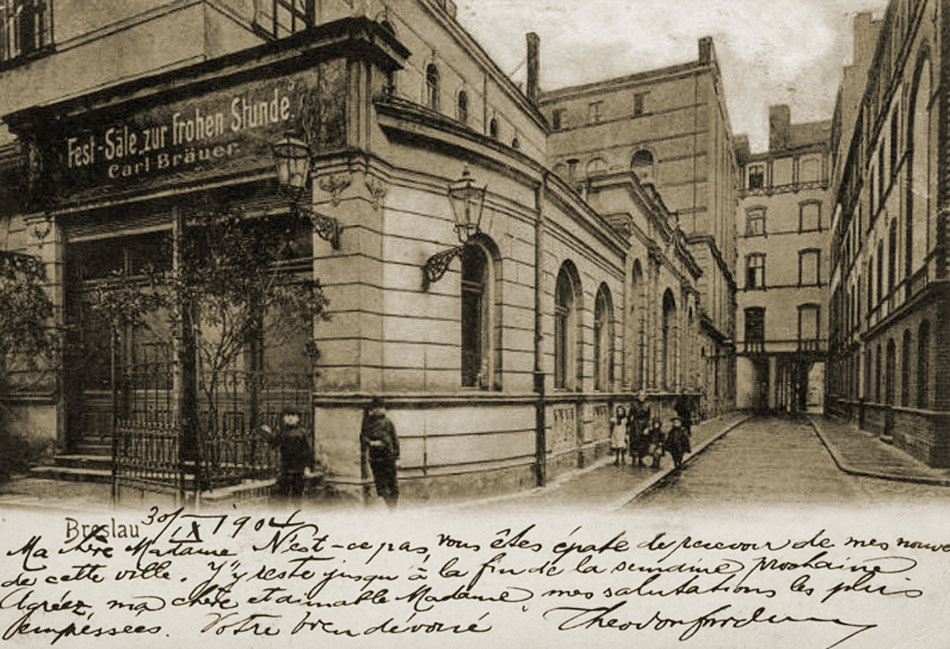 Fest-Säle zur frohen Stunde
Carl Bräuer
Breslau 30/IX 1904
Ma chère Madame N'est-ce pas, vous êtes épaté de recevoir de mes nouve
de cette ville. J'y reste jusqu'à la fin de la semaine prochaine
Agréez, ma chère et aimable Madame, mes salutations les plus
empéssees. Votre bien dévoué